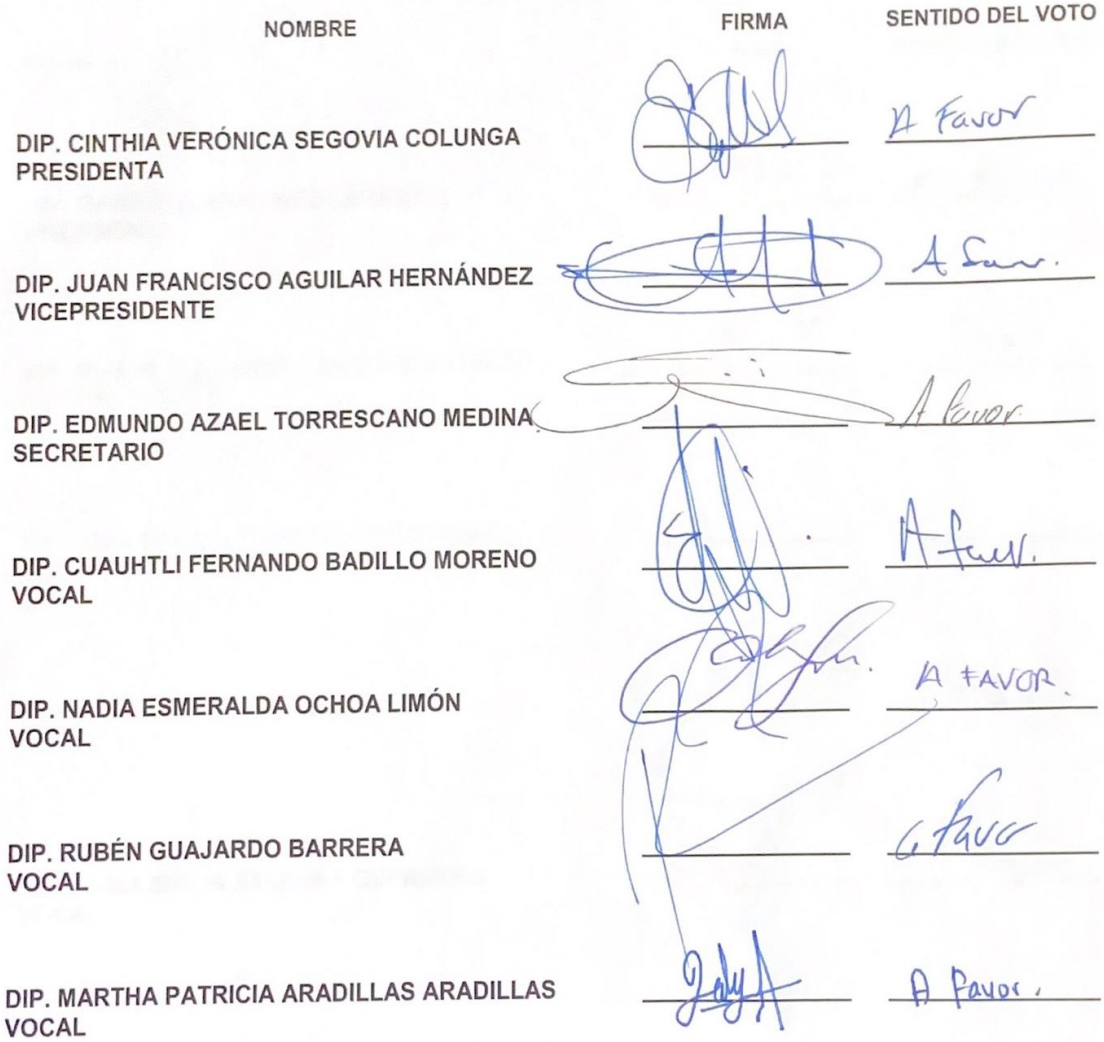 NOMBRE FIRMA SENTIDO DEL VOTO
A Favor
DIP. CINTHIA VERÓNICA SEGOVIA COLUNGA
PRESIDENTA
A favor.
DIP. JUAN FRANCISCO AGUILAR HERNÁNDEZ
VICEPRESIDENTE
DIP. EDMUNDO AZAEL TORRESCANO MEDINA A favor.
SECRETARIO
A favor.
DIP. CUAUHTLI FERNANDO BADILLO MORENO
VOCAL
A FAVOR.
DIP. NADIA ESMERALDA OCHOA LIMÓN
VOCAL
a Favor
DIP. RUBÉN GUAJARDO BARRERA
VOCAL
DIP. MARTHA PATRICIA ARADILLAS ARADILLAS A Favor.
VOCAL